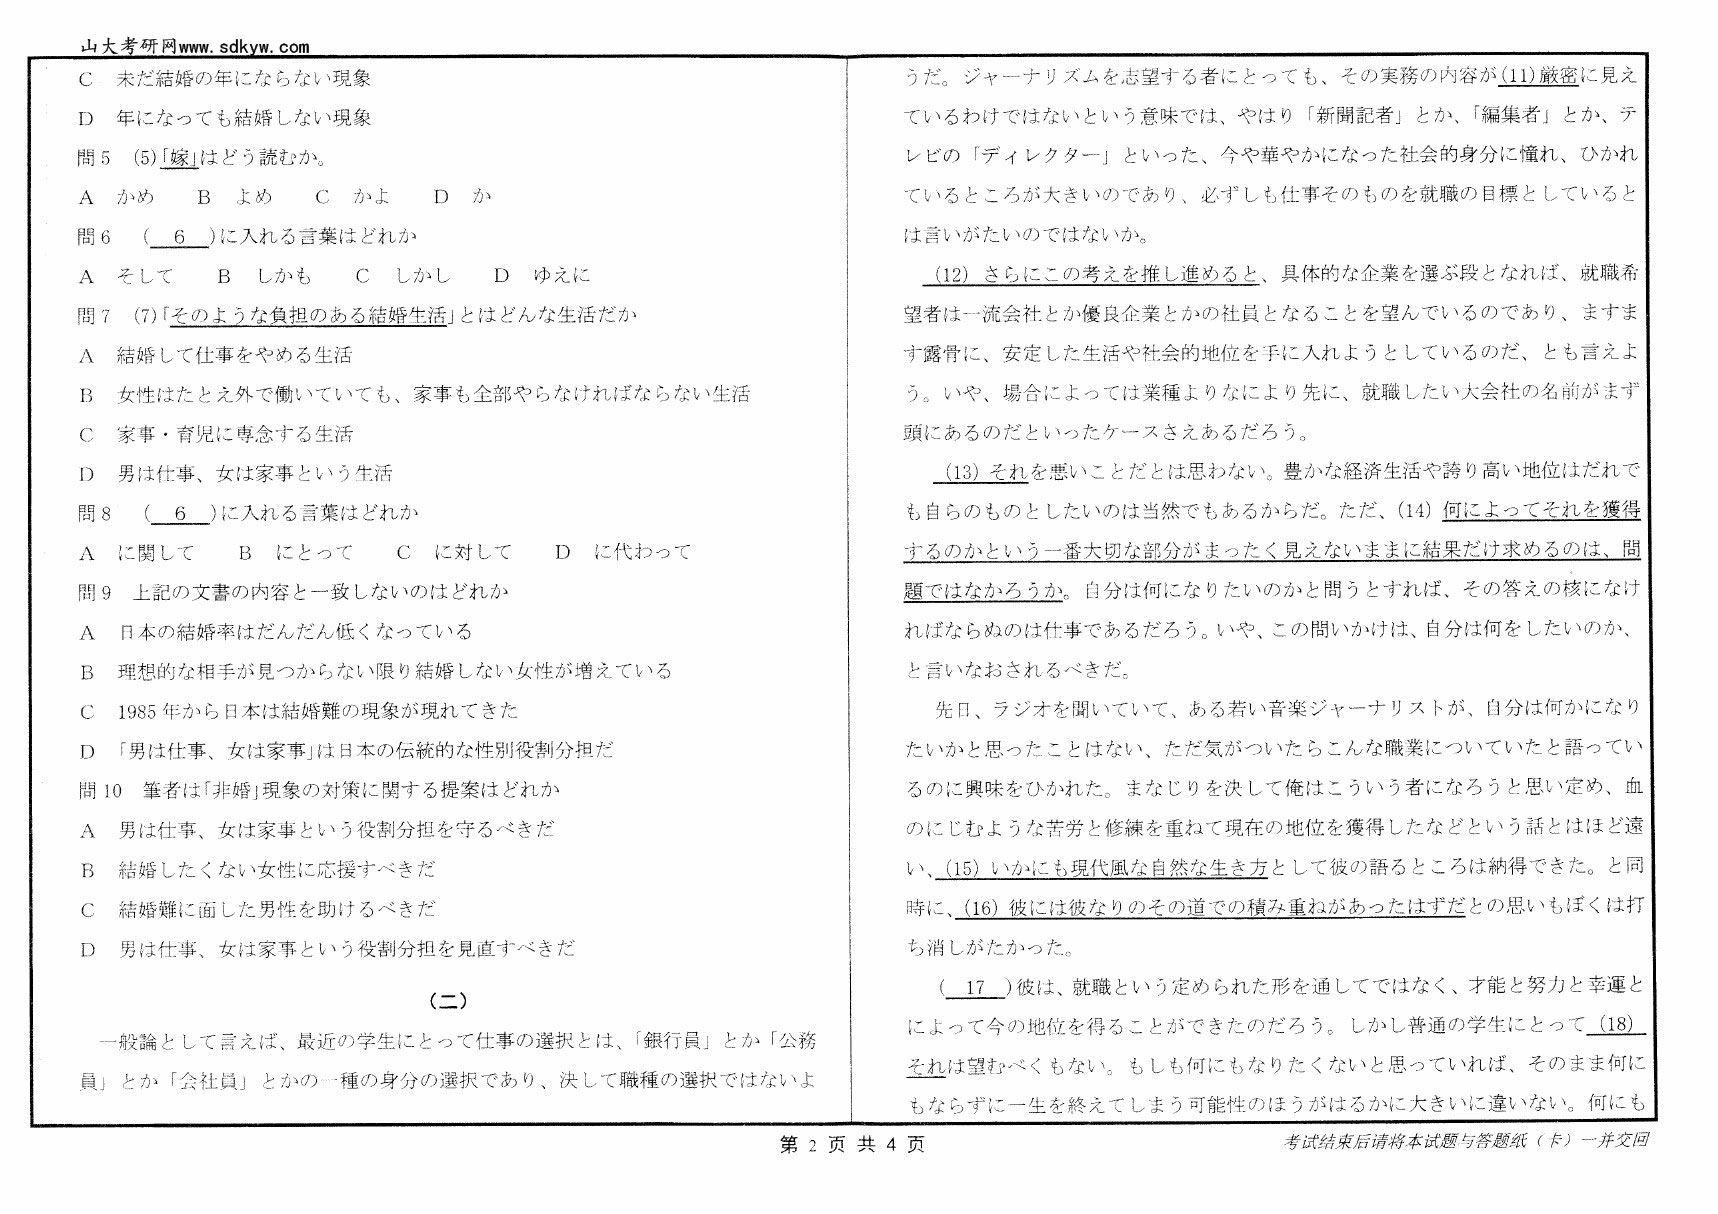 山大考研网www.sdkyw.com
C　未だ結婚の年にならない現象
D　年になっても結婚しない現象
問５　(5)「嫁」はどう読むか。
A　かめ　　B　よめ　　C　かよ　　D　か
問６　（　6　)に入れる言葉はどれか
A　そして　　B　しかも　　C　しかし　　D　ゆえに
問７　(7)「そのような負担のある結婚生活」とはどんな生活だか
A　結婚して仕事をやめる生活
B　女性はたとえ外で働いていても、家事も全部やらなければならない生活
C　家事・育児に専念する生活
D　男は仕事、女は家事という生活
問８　（　6　)に入れる言葉はどれか
A　に関して　　B　にとって　　C　に対して　　D　に代わって
問９　上記の文書の内容と一致しないのはどれか
A　日本の結婚率はだんだん低くなっている
B　理想的な相手が見つからない限り結婚しない女性が増えている
C　1985 年から日本は結婚難の現象が現れてきた
D　「男は仕事、女は家事」は日本の伝統的な性別役割分担だ
問 10　筆者は「非婚」現象の対策に関する提案はどれか
A　男は仕事、女は家事という役割分担を守るべきだ
B　結婚したくない女性に応援すべきだ
C　結婚難に面した男性を助けるべきだ
D　男は仕事、女は家事という役割分担を見直すべきだ
（二）
一般論として言えば、最近の学生にとって仕事の選択とは、「銀行員」とか「公務
員」とか「会社員」とかの一種の身分の選択であり、決して職種の選択ではないよ
うだ。ジャーナリズムを志望する者にとっても、その実務の内容が(11)厳密に見え
ているわけではないという意味では、やはり「新聞記者」とか、「編集者」とか、テ
レビの「ディレクター」といった、今や華やかになった社会的身分に憧れ、ひかれ
ているところが大きいのであり、必ずしも仕事そのものを就職の目標としていると
は言いがたいのではないか。
(12) さらにこの考えを推し進めると、具体的な企業を選ぶ段となれば、就職希
望者は一流会社とか優良企業とかの社員となることを望んでいるのであり、ますま
す露骨に、安定した生活や社会的地位を手に入れようとしているのだ、とも言えよ
う。いや、場合によっては業種よりなにより先に、就職したい大会社の名前がまず
頭にあるのだといったケースさえあるだろう。
(13) それを悪いことだとは思わない。豊かな経済生活や誇り高い地位はだれで
も自らのものとしたいのは当然でもあるからだ。ただ、(14) 何によってそれを獲得
するのかという一番大切な部分がまったく見えないままに結果だけ求めるのは、問
題ではなかろうか。自分は何になりたいのかと問うとすれば、その答えの核になけ
ればならぬのは仕事であるだろう。いや、この問いかけは、自分は何をしたいのか、
と言いなおされるべきだ。
先日、ラジオを聞いていて、ある若い音楽ジャーナリストが、自分は何かになり
たいかと思ったことはない、ただ気がついたらこんな職業についていたと語ってい
るのに興味をひかれた。まなじりを決して俺はこういう者になろうと思い定め、血
のにじむような苦労と修練を重ねて現在の地位を獲得したなどという話とはほど遠
い、(15) いかにも現代風な自然な生き方として彼の語るところは納得できた。と同
時に、(16) 彼には彼なりのその道での積み重ねがあったはずだとの思いもぼくは打
ち消しがたかった。
（　17　)彼は、就職という定められた形を通してではなく、才能と努力と幸運と
によって今の地位を得ることができたのだろう。しかし普通の学生にとって (18)
それは望むべくもない。もしも何にもなりたくないと思っていれば、そのまま何に
もならずに一生を終えてしまう可能性のほうがはるかに大きいに違いない。何にも
第 2 页 共 4 页
考试结束后请将本试题与答题纸（卡）一并交回